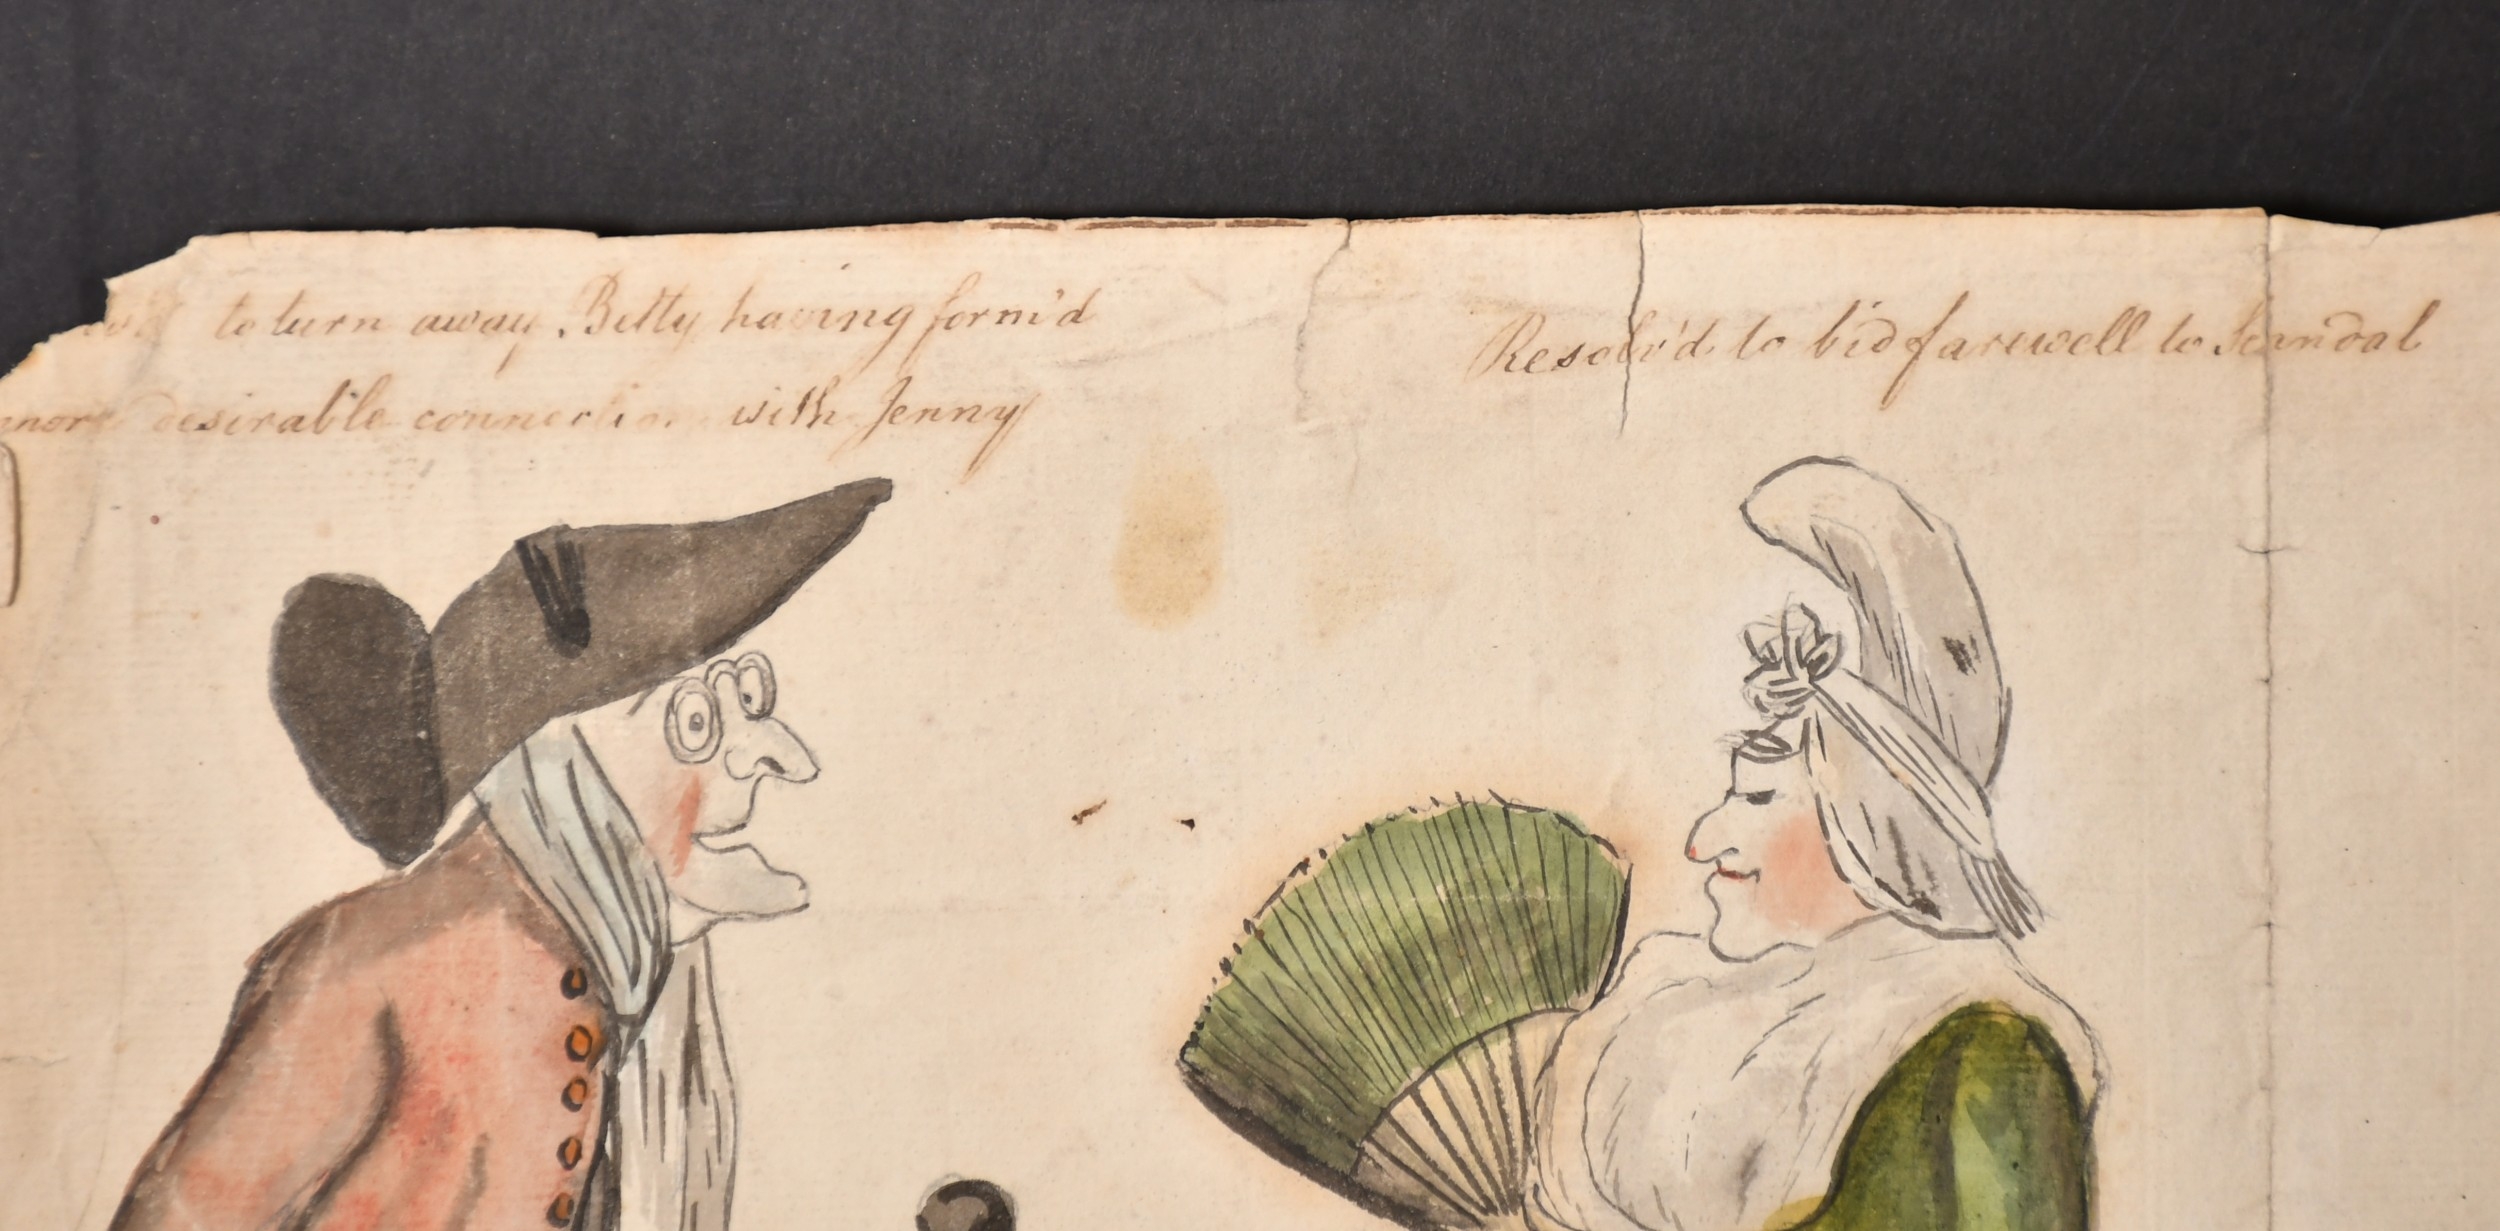 to turn away Betty having form'd
more desirable connection with Jenny
Resolv'd to bid farewell to Scandal